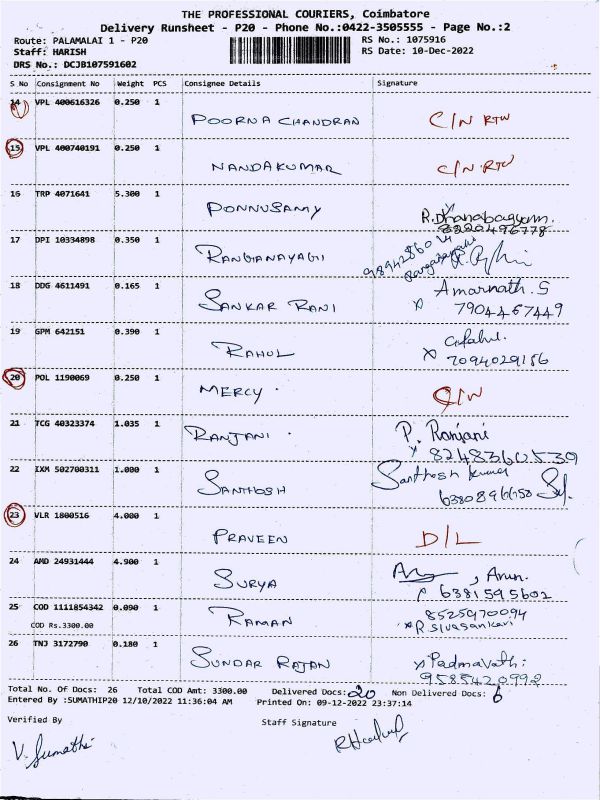 THE PROFESSIONAL COURIERS, Coimbatore
Delivery Runsheet - P20 - Phone No.:0422-3505555 - Page No.:2
Route: PALAMALAI 1 - P20 RS No.: 1075916
Staff: HARISH RS Date: 10-Dec-2022
DRS No.: DCJB107591602
S No Consignment No Weight PCS Consignee Details Signature
14 VPL 400616326 0.250 1
POORNA CHANDRAN C/N RTW
15 VPL 400740191 0.250 1
NANDAKUMAR C/N RTW
16 TRP 4071641 5.300 1
PONNUSAMY R.Dhanabagyam.
8220496778
17 DPI 10334898 0.350 1
RANGANAYAGI
18 DDG 4611491 0.165 1 Amarnath.S
SANKAR RANI x 7904467449
19 GPM 642151 0.390 1
RAHUL x 7094029156
20 POL 1190069 0.250 1
MERCY. C/W
21 TCG 40323374 1.035 1 P. Ranjani
RANJANI. x 8248360539
22 IXM 502700311 1.000 1 Santhosh kumar
SANTHOSH 6380896658
23 VLR 1800516 4.000 1
PRAVEEN D/L
24 AMD 24931444 4.900 1 , Arun.
SURYA 6381595602
25 COD 1111854342 0.090 1 8525970094
COD Rs.3300.00 RAMAN x R.Sivasankari
26 TNJ 3172790 0.180 1 x Padmavathi
SUNDAR RAJAN 9585420992
Total No. Of Docs: 26 Total COD Amt: 3300.00 Delivered Docs: 20 Non Delivered Docs: 6
Entered By :SUMATHIP20 12/10/2022 11:36:04 AM Printed On: 09-12-2022 23:37:14
Verified By Staff Signature
V. Sumathi